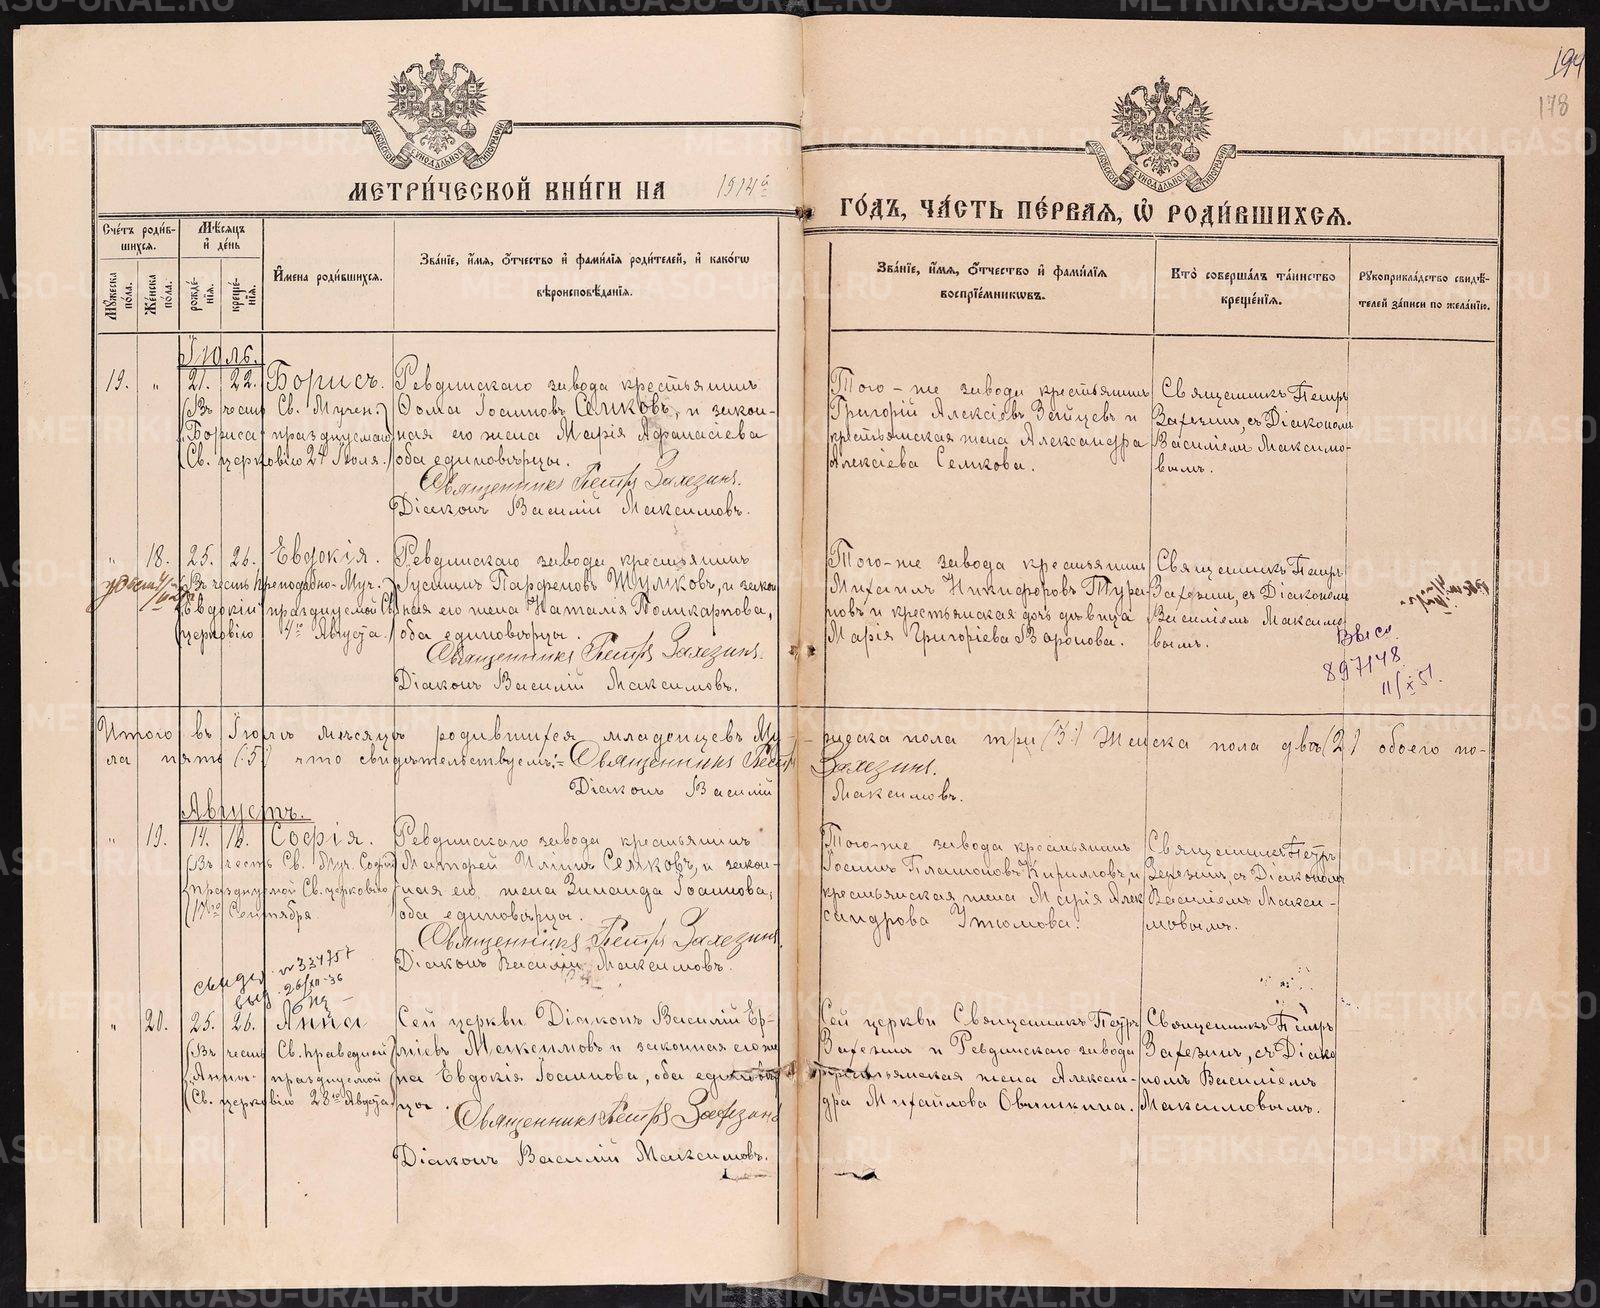 194
178
МЕТРИ́ЧЕСКОЙ КНИ́ГИ НА 1914й
ГО́ДЪ, ЧА́СТЬ ПЕ́РВАѦ, Ѽ РОДИ́ВШИХСѦ.
Сче́тъ роди́в-
шихсѧ.
Мꙋ́жеска по́ла.
Же́нска по́ла.
Мѣ́сѧцъ и҆ де́нь
рожде́-
нїѧ.
креще́-
нїѧ.
И҆мена роди́вшихсѧ.
Зва́нїе, и҆́мѧ, о҆́тчество и҆ фами́лїѧ роди́телей, и҆ како́гѡ
вѣроисповѣ́данїѧ.
Зва́нїе, и҆́мѧ, о҆́тчество и҆ фами́лїѧ
воспрїе́мникѡвъ.
Кто̀ соверша́лъ та́инство
креще́нїѧ.
Рꙋкоприкла́дство свидѣ́-
телей за́писи по жела́нїю.
Іюль.
19. " 21. 22. Борисъ.
(Въ честь Св. Мучен.
Бориса празднуемаго
Св. церковію 24 Іюля.)
Ревдинскаго завода крестьянинъ
Ѳома Іоанновъ Семковъ, и закон-
ная его жена Марія Афанасіева
оба единовѣрцы.
Священникъ Петръ Захезинъ.
Діаконъ Василій Максимовъ.
Того-же завода крестьянинъ
Григорій Алексіевъ Зайцевъ и
крестьянская жена Александра
Алексіева Семкова.
Священникъ Петръ
Захезинъ, съ Діакономъ
Василіемъ Максимо-
вымъ.
" 18. 25. 26. Евдокія.
(Въ честь Преподобно-Муч.
Евдокіи празднуемой Св.
церковію 4го Августа.)
Ревдинскаго завода крестьянинъ
Іустинъ Парфеновъ Шумковъ, и закон-
ная его жена Наталія Поликарпова,
оба единовѣрцы.
Священникъ Петръ Захезинъ.
Діаконъ Василій Максимовъ.
Того-же завода крестьянинъ
Михаилъ Никифоровъ
и крестьянская дочь дѣвица
Марія Григоріева Воронова.
Священникъ Петръ
Захезинъ, съ Діакономъ
Василіемъ Максимо-
вымъ.
897148
11/X 51.
Итого въ Іюлѣ мѣсяцѣ родившихся младенцевъ Му-
жеска пола три (3) Женска пола двѣ (2) обоего по-
ла пять (5) что свидѣтельствуемъ:= Священникъ Петръ Захезинъ.
Діаконъ Василій Максимовъ.
Августъ.
" 19. 14. 16. Софія.
(Въ честь Св. Муч. Софіи
празднуемой Св. церковію
17го Сентября
Ревдинскаго завода крестьянинъ
Матфей Иліинъ Семковъ, и закон-
ная его жена Зинаида Іоаннова,
оба единовѣрцы.
Священникъ Петръ Захезинъ.
Діаконъ Василій Максимовъ.
Того-же завода крестьянинъ
Іоаннъ Платоновъ Кириловъ, и
крестьянская жена Марія Алек-
сандрова Утюмова.
Священникъ Петръ
Захезинъ, съ Діакономъ
Василіемъ Макси-
мовымъ.
26/XII-36
" 20. 25. 26. Анна
(Въ честь Св. праведной
Анны празднуемой
Св. церковію 28го Августа)
Сей церкви Діаконъ Василій Ер-
міевъ Максимовъ и законная его же-
на Евдокія Іоаннова, оба единовѣр-
цы. Священникъ Петръ Захезинъ
Діаконъ Василій Максимовъ.
Сей церкви Священникъ Петръ
Захезинъ и Ревдинскаго завода
крестьянская жена Алексан-
дра Михайлова Овчинкина.
Священникъ Петръ
Захезинъ, съ Діако-
номъ Василіемъ
Максимовымъ.
METRIKI.GASO-URAL.RU